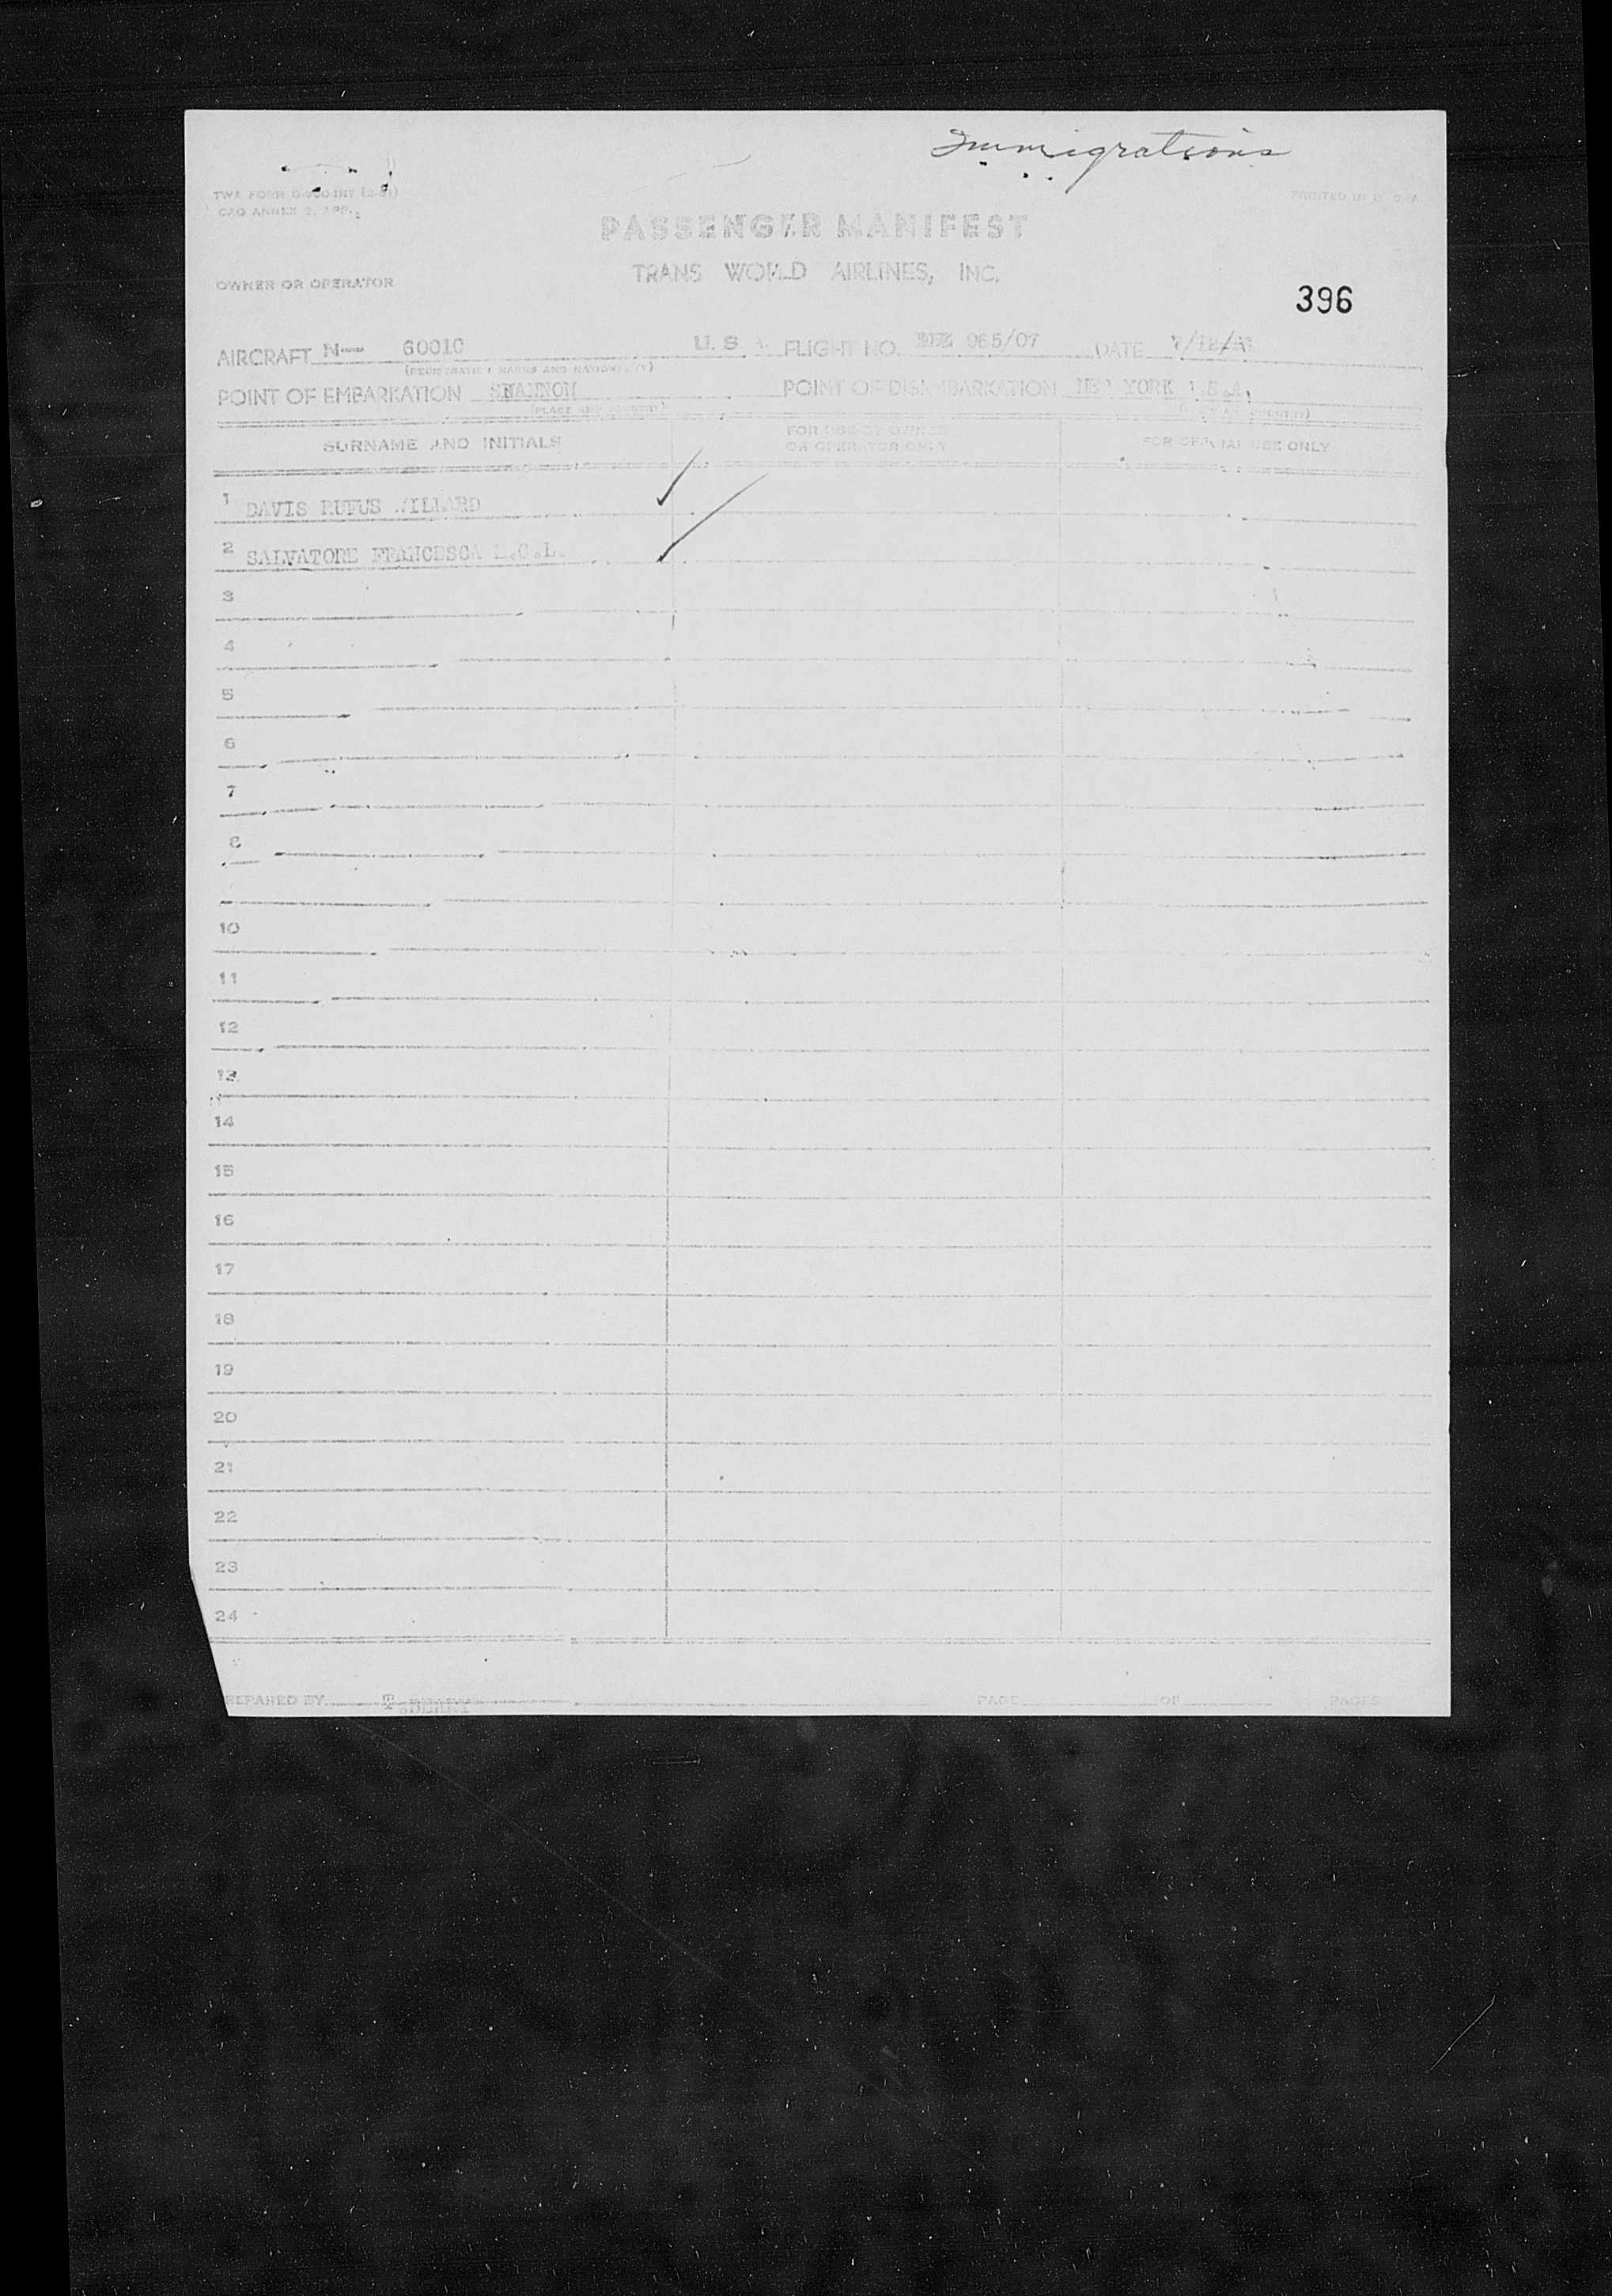 Immigrations
TWA FORM
CAO ANNEX 9,
PRINTED IN U.S.A.
PASSENGER MANIFEST
TRANS WORLD AIRLINES, INC.
OWNER OR OPERATOR
396
AIRCRAFT N— 60010 U.S.A. FLIGHT NO. 965/07 DATE
(REGISTRATION MARKS AND NATIONALITY)
POINT OF EMBARKATION SHANNON POINT OF DISEMBARKATION NEW YORK U.S.A.
(PLACE AND COUNTRY) (PLACE AND COUNTRY)
SURNAME AND INITIALS FOR USE BY OWNER OR OPERATOR ONLY FOR OFFICIAL USE ONLY
1 DAVIS RUFUS WILLARD
2 SALVATORE FRANCESCA
3
4
5
6
7
8
10
11
12
13
14
15
16
17
18
19
20
21
22
23
24
PREPARED BY T. BERRY PAGE OF PAGES